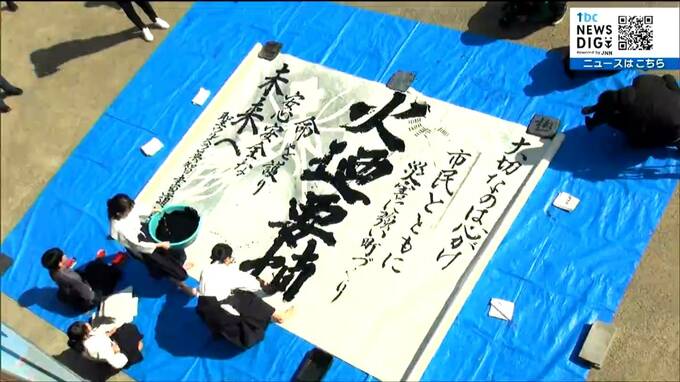 tbc
NEWS
DIG
Powered by JNN
ニュースはこちら
大切なのは心がけ
市民とともに
災害に強い町づくり
火廼要慎
命を護り
安心安全な
未来へ